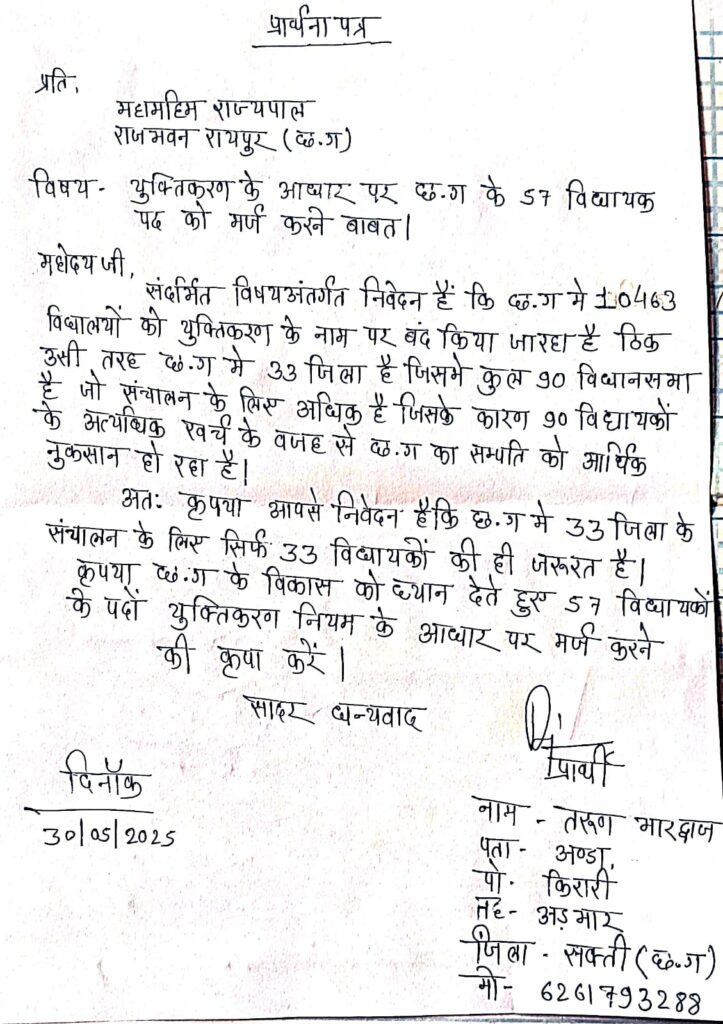 प्रार्थना पत्र
प्रति,
महामहिम राज्यपाल
राजभवन रायपुर (छ.ग)
विषय - युक्तिकरण के आधार पर छ.ग के 57 विधायक
पद को मर्ज करने बाबत।
महोदय जी,
संदर्भित विषयअंतर्गत निवेदन हैं कि छ.ग मे 10463
विद्यालयों को युक्तिकरण के नाम पर बंद किया जारहा है ठिक
उसी तरह छ.ग मे 33 जिला है जिसमे कुल 90 विधानसभा
है जो संचालन के लिए अधिक है जिसके कारण 90 विधायकों
के अत्यधिक खर्च के वजह से छ.ग का सम्पति को आर्थिक
नुकसान हो रहा है।
अतः कृपया आपसे निवेदन हैकि छ.ग मे 33 जिला के
संचालन के लिए सिर्फ 33 विधायकों की ही जरूरत है।
कृपया छ.ग के विकास को ध्यान देते हुए 57 विधायकों
के पदों युक्तिकरण नियम के आधार पर मर्ज करने
की कृपा करें।
सादर धन्यवाद
प्रार्थी
दिनॉक
30/05/2025
नाम - तरूण भारद्वाज
पता - अण्डा,
पो. किरारी
तह - अड़भार
जिला - सक्ती (छ.ग)
मो - 6261793288